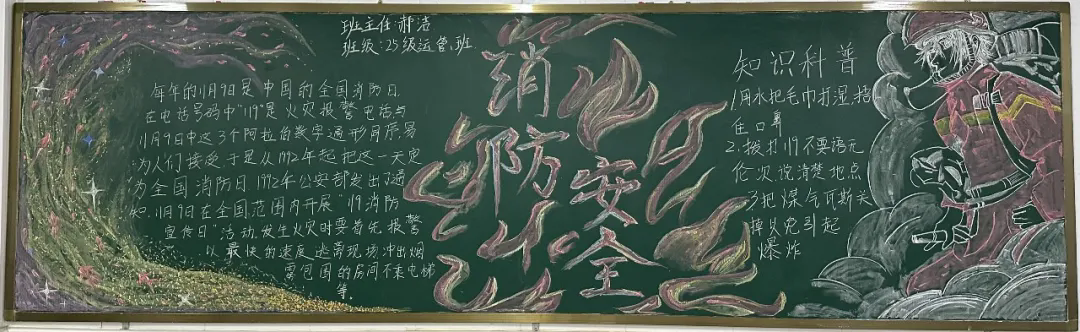 班主任:郝洁
班级:25级运管班
每年的11月9日是中国的全国消防日
在电话号码中"119"是火灾报警电话与
11月9日中这3个阿拉伯数字通形同序易
为人们接受于是从1992年起把这一天定
为全国消防日1992年公安部发出了通
知.11月9日在全国范围内开展"119消防
宣传日"活动.发生火灾时要首先报警
以最快的速度逃离现场冲出烟
雾包围的房间不乘电梯
等.
消防安全
知识科普
1.用水把毛巾打湿,捂
住口鼻
2.拨打119不要语无
伦次说清楚地点
3把煤气瓦斯关
掉以免引起
爆炸